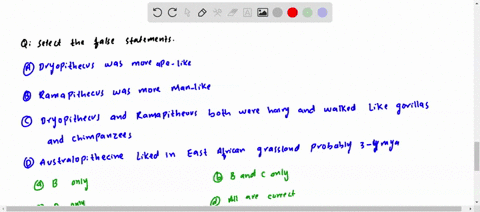 Q: Select the false statements.
Ⓐ Dryopithecus was more ape-like
Ⓑ Ramapithecus was more Man-like
Ⓒ Dryopithecus and Ramapithecus both were hairy and walked like gorillas
and chimpanzees
Ⓓ Australopithecine liked in East African grassland probably 3-4mya
ⓐ B only
ⓑ B and C only
only
ⓓ All are correct